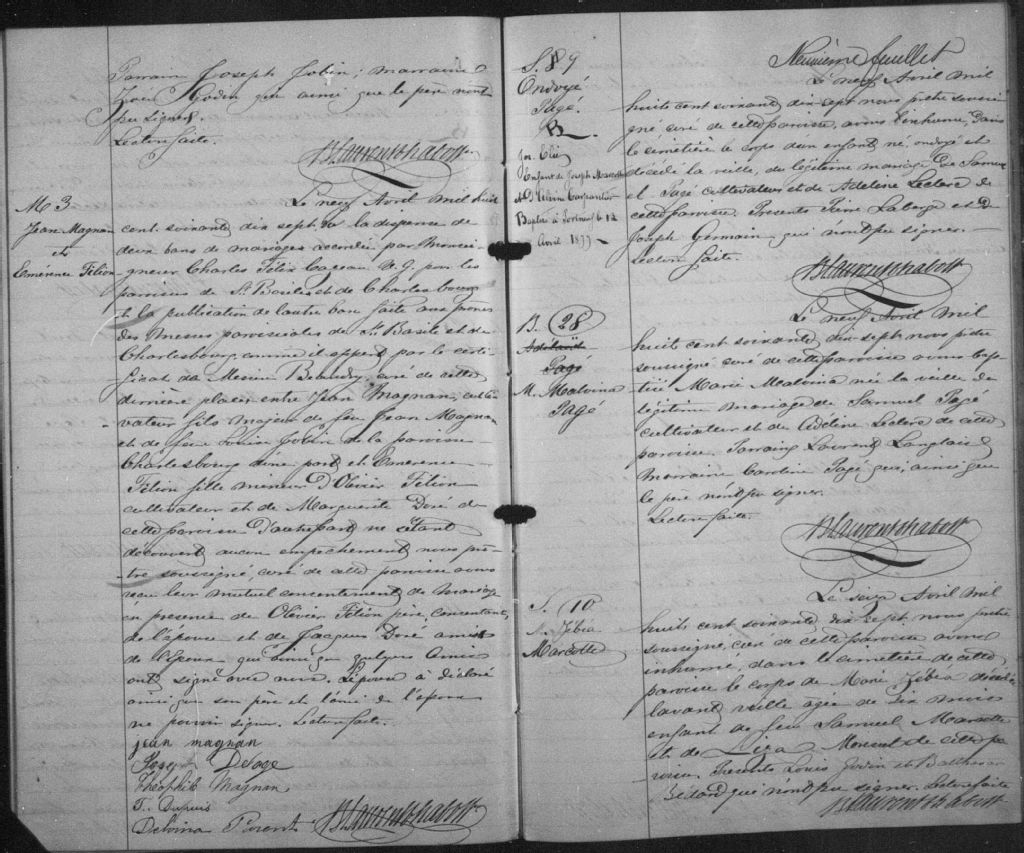 Parrain Joseph Jobin; marraine
Zoé Godin qui ainsi que le père n'ont
pu signer.
Lecture faite.
M 3
Jean Magnan
et
Emerence Filion
Le neuf Avril mil huit
cent soixante dix sept, vu la dispense de
deux bans de mariage accordée par Monsei-
gneur Charles Félix Cazeau V. G. pour les
paroisses de St Basile et de Charlesbourg
et la publication de l'autre ban faite aux prônes
des Messes paroissiales de St Basile et de
Charlesbourg comme il appert par le certi-
ficat de Messire Beaudry, curé de cette
dernière place, entre Jean Magnan, culti-
vateur fils majeur de feu Jean Magnan
et de feue Louise Jobin de la paroisse
Charlesbourg d'une part, et Emerence
Filion fille mineure D'Olivier Filion
cultivateur et de Marguerite Doré de
cette paroisse D'autre part ne s'étant
découvert aucun empêchement, nous prê-
-tre soussigné, curé de cette paroisse avons
reçu leur mutuel consentement de mariage
en présence de Olivier Filion père, consentant,
de l'épouse et de Jacques Doré ami
de l'époux qui ainsi que quelques amis
ont signé avec nous. L'épouse a déclaré
ainsi que son père et l'ami de l'époux
ne pouvoir signer. Lecture faite.
jean magnan
Théophile Magnan
T. Dupuis
Delvina Parent
S. 9
Ondoyé
Pagé.
Jos. Elie
Enfant de Joseph Marcotte
et D'Delvine Carpentier
Baptisé à Portneuf le 12
Avril 1877
Neuvième feuillet
Le neuf Avril mil
huit cent soixante dix sept nous prêtre soussi-
gné curé de cette paroisse, avons inhumé, dans
le cimetière le corps d'un enfant né, ondoyé et
décédé la veille, du légitime mariage De Samu-
el Pagé cultivateur et de Adeline Leclerc de
cette paroisse. Présents Pierre Laberge et
Joseph Germain qui n'ont pu signer.
Lecture faite.
B. 28
Adelaide
Pagé
M. Malvina
Pagé
Le neuf Avril mil
huit cent soixante dix sept nous prêtre
soussigné curé de cette paroisse avons bap-
tisé Marie Malvina née la veille du
légitime mariage de Samuel Pagé
cultivateur et de Adéline Leclerc de cette
paroisse. Parrain Laurent Langlais
Marraine Caroline Pagé qui, ainsi que
le père n'ont pu signer.
Lecture faite.
S. 10
M. Zébia
Marcotte
Le seize Avril mil
huit cent soixante dix sept nous prêtre
soussigné, curé de cette paroisse avons
inhumé, dans le cimetière de cette
paroisse le corps de Marie Zébia décédée
l'avant veille âgée de dix mois
enfant de feu Samuel Marcotte
et de de cette pa-
roisse. Présents Louis Godin et Balthazar
Bédard qui n'ont pu signer. Lecture faite